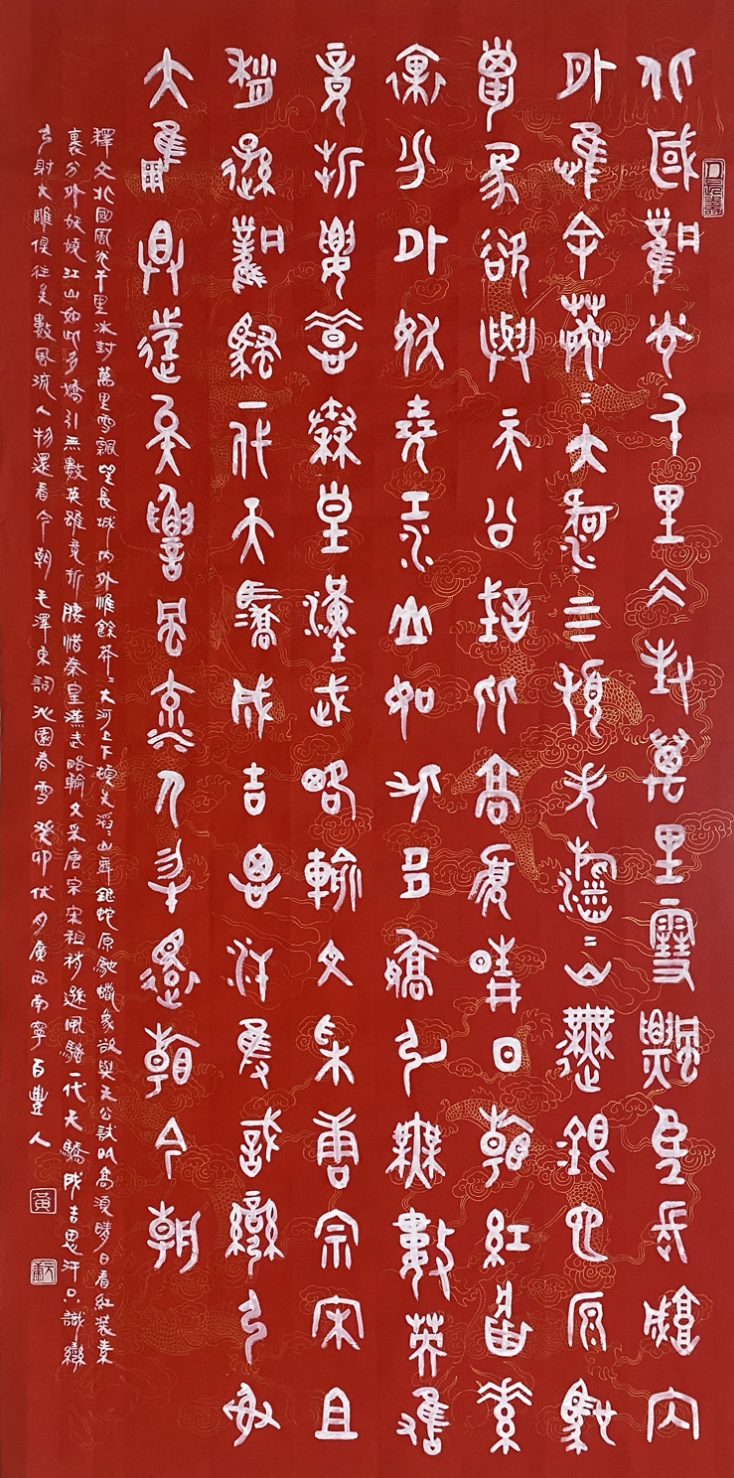 北國風光千里冰封萬里雪飄望長城內
外惟余莽〻大河上下頓失滔〻山舞銀蛇原馳
蠟象欲與天公試比高須晴日看紅裝素
裹分外妖嬈江山如此多嬌引無數英雄
竟折腰惜秦皇漢武略輸文采唐宗宋且
稍遜風騷一代天驕成吉思汗隻識彎弓射
大雕俱往矣數風流人物還看今朝
釋文北國風光千里冰封萬里雪飄望長城內外惟餘莽〻大河上下頓失滔〻山舞銀蛇原馳蠟象欲與天公試比高須晴日看紅裝素
裹分外妖嬈江山如此多嬌引無數英雄竟折腰惜秦皇漢武略輸文采唐宗宋祖稍遜風騷一代天驕成吉思汗只識彎
弓射大雕俱往矣數風流人物還看今朝毛澤東詞沁園春雪癸卯伏月廣西南寧百豐人
黃